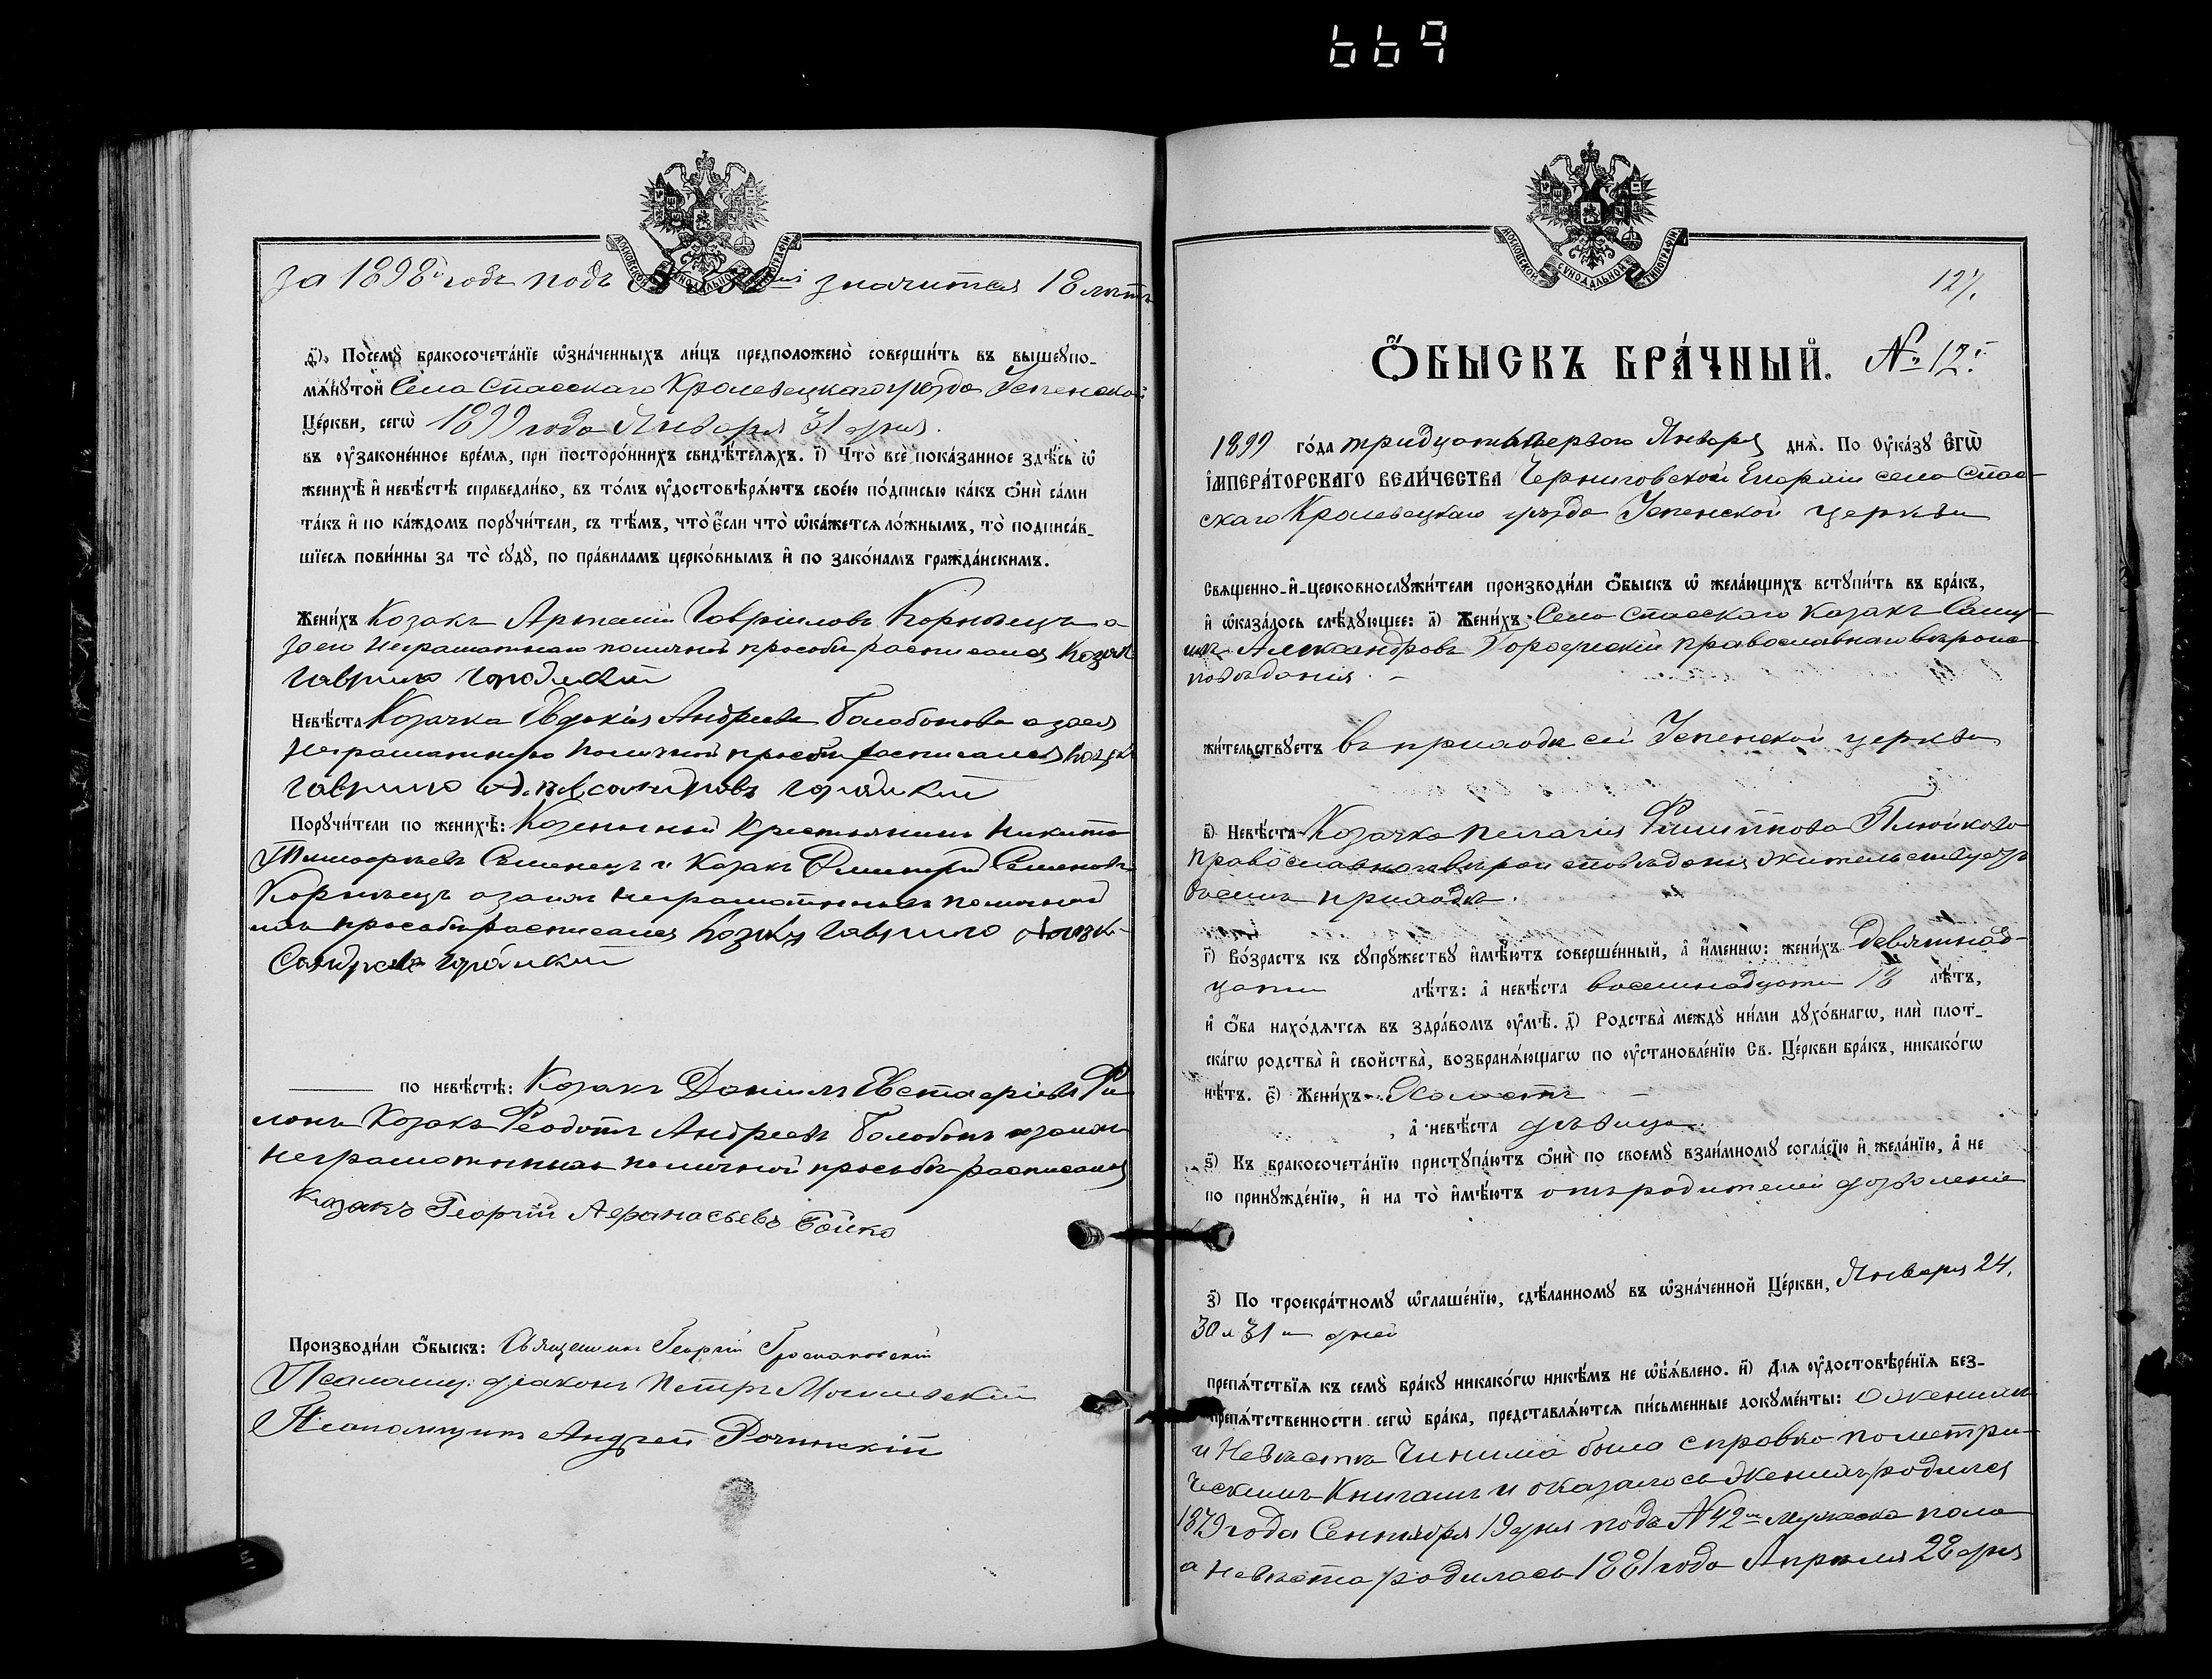 667
МОСКОВСКОЙ СѴНОДАЛЬНОЙ ТИПОГРАФІИ
за 1898й годъ подъ значится 18 лѣтъ
д҃і). Посемꙋ̀ бракосочета́нїе ѡ҆зна́ченныхъ ли́цъ предположено̀ соверши́ть въ вышеꙋпо-
мѧ́нꙋтой Села Спасскаго Кролевецкаго уѣзда Успенской
Це́ркви, сегѡ̀ 1899 года Января 31 дня.
въ ᲂу҆законе́нное вре́мѧ, при посторо́ннихъ свидѣ́телѧхъ. і҃) Что̀ всѐ пока́занное здѣ́сь ѡ҆
женихѣ̀ и҆ невѣ́стѣ справедли́во, въ то́мъ ᲂу҆достовѣрѧ́ютъ свое́ю по́дписью ка́къ ѻ҆нѝ са́ми
та́къ и҆ по ка́ждомъ порꙋчи́тели, съ тѣ́мъ, что̀ є҆́сли что̀ ѡ҆ка́жетсѧ ло́жнымъ, то̀ подписа́в-
шїесѧ пови́нны за то̀ сꙋдꙋ̀, по пра́виламъ церко́внымъ и҆ по зако́намъ гражда́нскимъ.
Жени́хъ Козакъ Артемій Гавріиловъ Корнѣецъ а
за его неграмотнаго по личной просьбѣ расписался Козакъ
Гаврило Городискій
Невѣ́ста Козачка Евдокія АндрееваБолобонова а за ея
неграмотную по личной просьбѣ расписался Козакъ
Гаврило Александровъ Городискій
Порꙋчи́тели по женихѣ̀: Казенный Крестьянинъ Никита
Тимофеевъ Семенецъ и Козакъ Димитрій Семеновъ
Корнѣецъ а за ихъ неграмотныхъ по личной
ихъ просьбѣ расписался Козакъ Гаврило Алек-
сандровъ Городискій
по невѣ́стѣ: Козакъ Даніилъ Евстафіевъ Фи
лонъ Козакъ Феодотъ Андреевъ Болобонъ а за ихъ
неграмотныхъ по личной просьбѣ расписался
Козакъ Георгій Афанасьевъ Бойко
Производи́ли ѻ҆́быскъ: Священникъ Георгій
Псаломщ. діаконъ Петръ
Псаломщикъ Андрей Рочинскій
МОСКОВСКОЙ СѴНОДАЛЬНОЙ ТИПОГРАФІИ
121.
Ѻ҆́БЫСКЪ БРА́ЧНЫЙ. № 12й
1899 го́да тридцать перваго Января днѧ̀. По Оу҆ка́зꙋ Є҆гѡ̀
І҆МПЕРА́ТОРСКАГО ВЕЛИ́ЧЕСТВА Черниговской Епархіи села Спас-
скаго Кролевецкаго уѣзда Успенской церкви
Свѧщенно-и҆-церковнослꙋжи́тели производи́ли ѻ҆́быскъ ѡ҆ жела́ющихъ встꙋпи́ть въ бра́къ,
и҆ ѡ҆каза́лось слѣ́дꙋющее: а҃) Жени́хъ: Села Спасскаго Козакъ Саму-
илъ Александровъ Городискій Православнаго вѣроис
повѣданія. -
жи́тельствꙋетъ въ приходѣ сей Успенской церкви
в҃) Невѣ́ста Козачка Пелагія Филиппова Плюйкова
Православнаго вѣроисповѣданія жительствуетъ
въ семъ приходѣ.
г҃) Во́зрастъ къ сꙋпрꙋ́жествꙋ и҆мѣ́ютъ соверше́нный, а҆ и҆́меннѡ: жени́хъ Девятнад-
цати лѣ́тъ: а҆ невѣ́ста восемнадцати 18 лѣ́тъ,
и҆ ѻ҆́ба нахо́дѧтсѧ въ здра́вомъ ᲂу҆мѣ̀. д҃) Родства̀ междꙋ̀ ни́ми дꙋхо́внагѡ, илѝ плот-
ска́гѡ родства̀ и҆ свойства̀, возбранѧ́ющагѡ по ᲂу҆становле́нїю Св. Це́ркви бра́къ, никако́гѡ
нѣ́тъ. є҃) Жени́хъ Холостъ -
, а҆ невѣ́ста дѣвица
ѕ҃) Къ бракосочета́нїю пристꙋпа́ютъ ѻ҆нѝ по своемꙋ̀ взаи́мномꙋ согла́сїю и҆ жела́нїю, а҆ не
по принꙋжде́нїю, и҆ на то̀ и҆мѣ́ютъ отъ родителей дозволеніе
з҃) По троекра́тномꙋ ѡ҆глаше́нїю, сдѣ́ланномꙋ въ ѡ҆зна́ченной Це́ркви, Января 24,
30 и 31 дней
препѧ́тствїѧ къ семꙋ̀ бра́кꙋ никако́гѡ никѣ́мъ не ѡ҆б̾ѧ́влено. и҃) Длѧ ᲂу҆достовѣре́нїѧ без-
препѧ́тственности сегѡ̀ бра́ка, представлѧ́ютсѧ пи́сьменные докꙋме́нты: О женихѣ
и Невѣстѣ чинима была справка по метри-
ческимъ Книгамъ и оказалось женихъ родился
1879 года Сентября 19 дня подъ № 42м мужска пола
а невѣста родилась 1881 года Апрѣля 28 дня